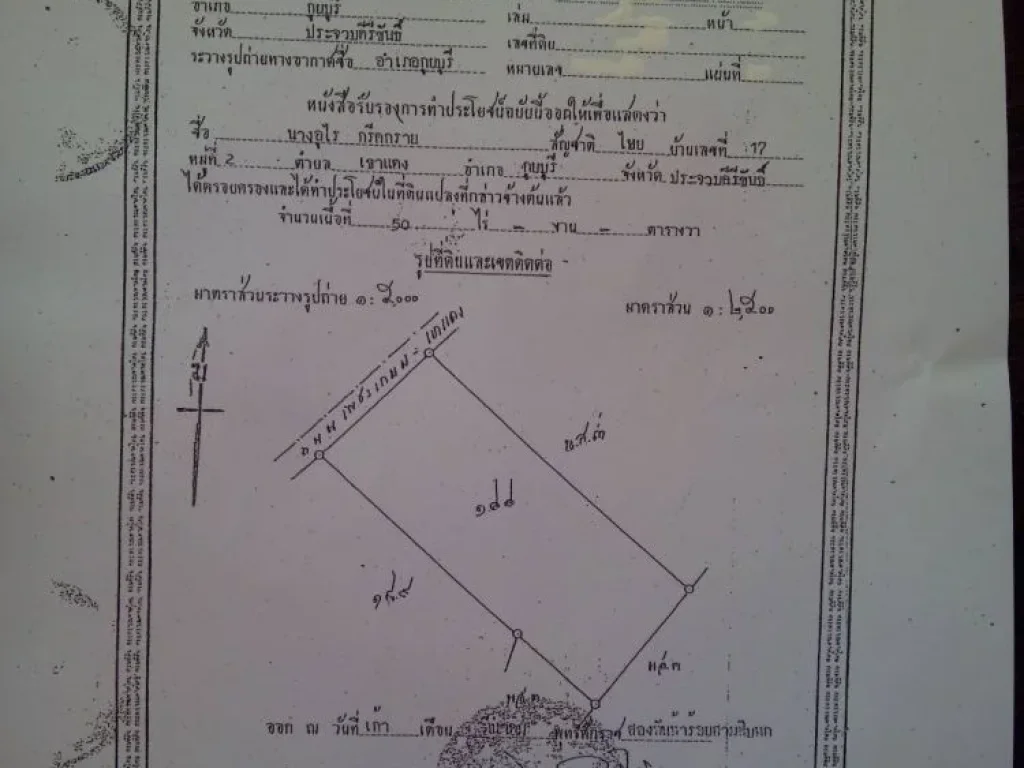 อำเภอ กุยบุรี เล่ม หน้า
จังหวัด ประจวบคีรีขันธ์ เลขที่ดิน
ระวางรูปถ่ายทางอากาศชื่อ อำเภอกุยบุรี หมายเลข แผ่นที่
หนังสือรับรองการทำประโยชน์ฉบับนี้ออกให้เพื่อแสดงว่า
ชื่อ นางอุไร สัญชาติ ไทย บ้านเลขที่ 17
หมู่ที่ 2 ตำบล เขาแดง อำเภอ กุยบุรี จังหวัด ประจวบคีรีขันธ์
ได้ครอบครองและได้ทำประโยชน์ในที่ดินแปลงที่กล่าวข้างต้นแล้ว
จำนวนเนื้อที่ 50 ไร่ - งาน - ตารางวา
รูปที่ดินและเขตติดต่อ
มาตราส่วนระวางรูปถ่าย ๑ : ๕,๐๐๐ มาตราส่วน ๑ : ๒,๕๐๐
ถนนเพชรเกษม - เขาแดง
น
น.ส.๓
๑๘๘
๑๘๙
น.ส.๓
น.ส.๓
ออก ณ วันที่ เก้า เดือน พุทธศักราช สองพันห้าร้อยสามสิบหก